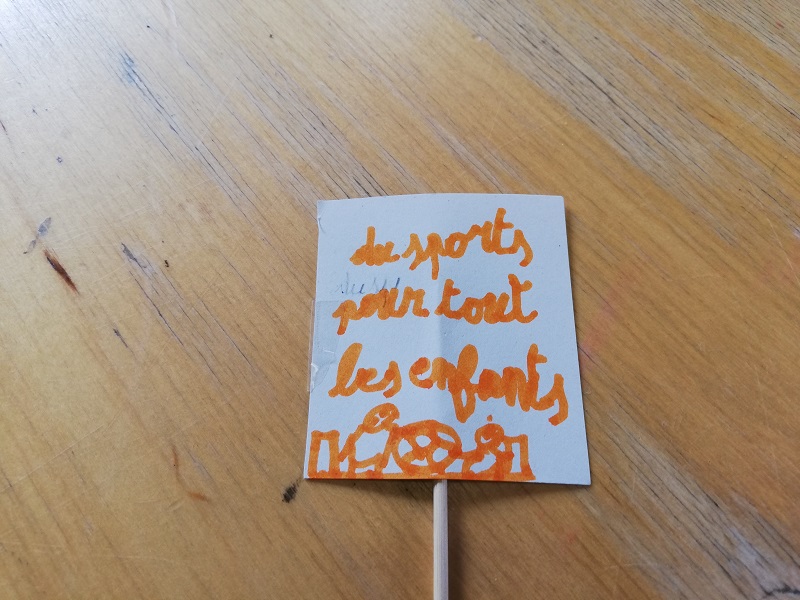 du sports
pour tout
les enfants